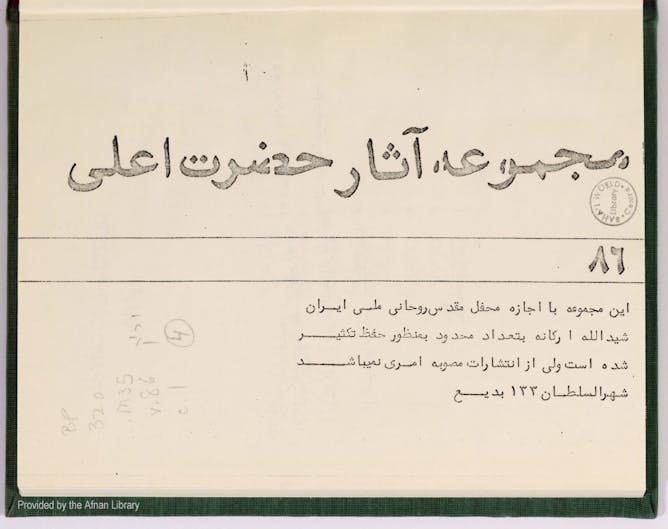 أ
مجموعه آثار حضرت اعلی
BAHA'I WORLD
Library
۸۶
این مجموعه با اجازه محفل مقدس روحانی ملی ایران
شیدالله ارکانه بتعداد محدود بمنظور حفظ تکثیر
شده است ولی از انتشارات مصوبه امری نمیباشد
شهرالسلطان ۱۳۳ بدیع
BP
320
.M35
v.86
c.1
4
Provided by the Afnan Library